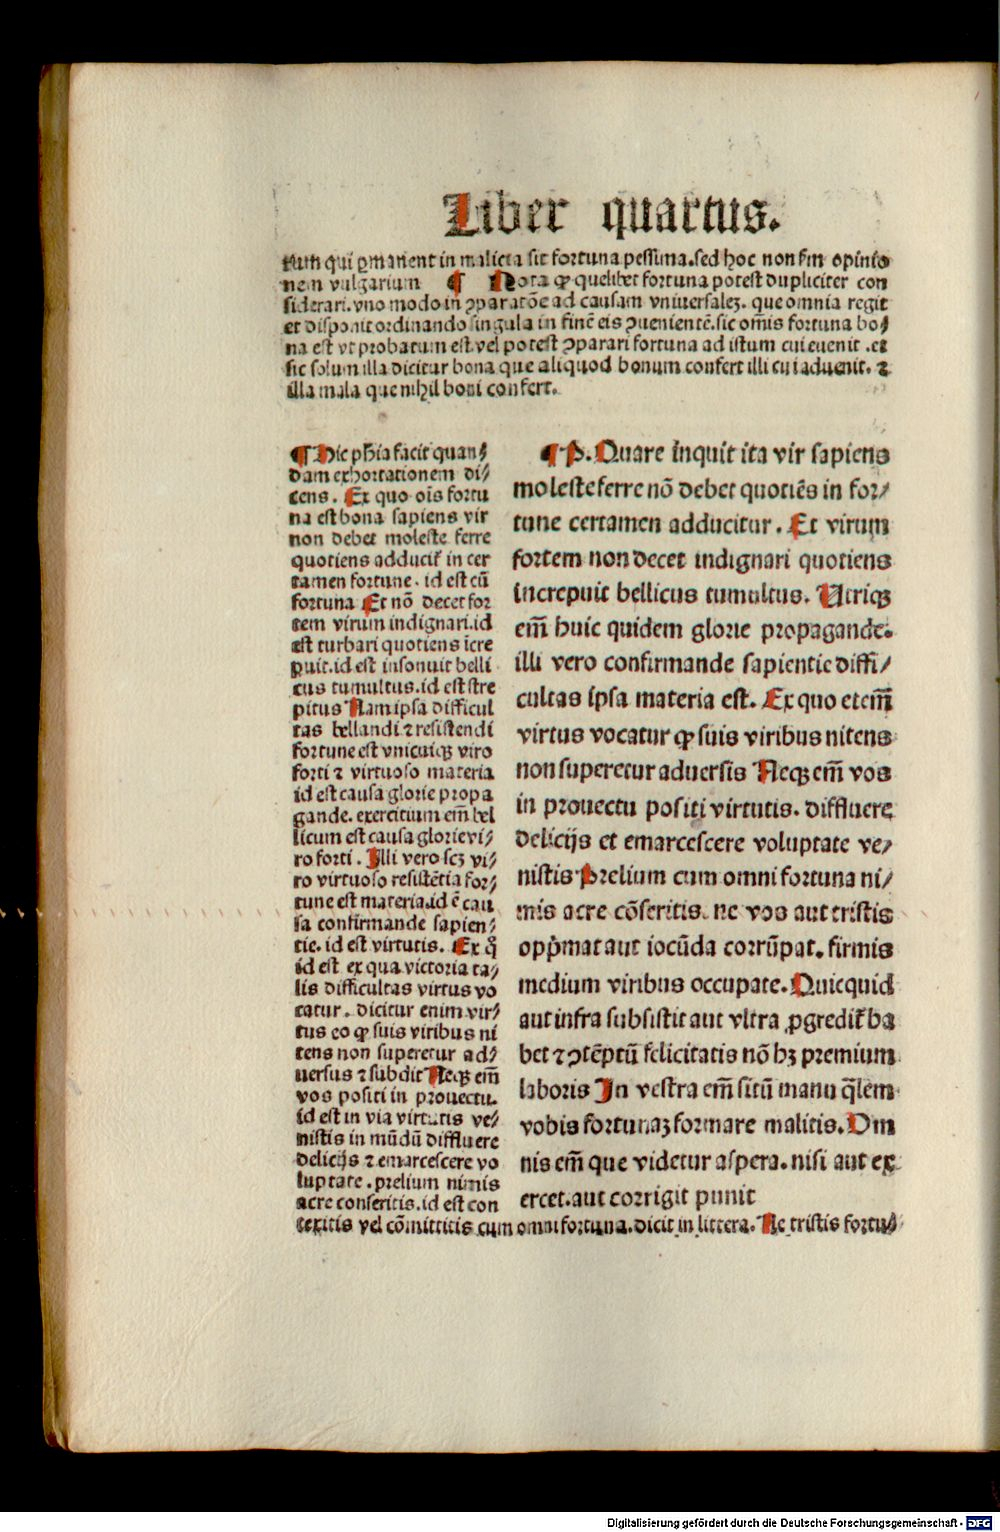 Liber quartus.
rum qui ꝑmanent in malicia sit fortuna pessima.sed hoc non ẜm opinio
nem vulgarium ¶ Nota ꝙ quelibet fortuna potest dupliciter con
siderari. vno modo in ꝯparatõe ad causam vniuersalez. que omnia regit
et disponit ordinando singula in finẽ eis ꝯuenientẽ.sic om̃is fortuna bo⸗
na est vt probatum est.vel potest ꝯparari fortuna ad istum cui euenit .et
sic solum illa dicitur bona que aliquod bonum confert illi cui aduenit. ⁊
illa mala que nihil boni confert.
¶ Hic ph̃ia facit quan⸗
dam exhortationem di⸗
cens. Ex quo oĩs fortu
na est bona sapiens vir
non debet moleste ferre
quotiens adducit᷑ in cer
tamen fortune. id est cũ
fortuna Et nõ decet for
tem virum indignari.id
est turbari quotiens ĩcre
puit.id est insonuit belli
cus tumultus.id est stre
pitus Nam ipsa difficul
tas bellandi ⁊ resistendi
fortune est vnicuiqꝫ viro
forti ⁊ virtuoso materia
id est causa glorie propa
gande. exercitium em̃ bel
licum est causa glorie vi⸗
ro forti. Illi vero scꝫ vi⸗
ro virtuoso resistẽtia for⸗
tune est materia.id ẽ cau
sa confirmande sapien⸗
tie. id est virtutis. Ex q̊
id est ex qua victoria ta⸗
lis difficultas virtus vo
catur. dicitur enim vir⸗
tus eo ꝙ suis viribus ni
tens non superetur ad⸗
uersus ⁊ subdit Neqꝫ em̃
vos positi in prouectu.
id est in via virtutis ve⸗
nistis in mũdũ diffluere
delicijs ⁊ emarcescere vo
luptate. prelium nimis
acre conseritis.id est con
texitis vel cõmittitis cum omni fortuna.dicit in littera. Ne tristis fortu⸗
¶ P. Quare inquit ita vir sapiens
moleste ferre nõ debet quotiẽs in for⸗
tune certamen adducitur. Et virum
fortem non decet indignari quotiens
increpuit bellicus tumultus. Utriqꝫ
em̃ huic quidem glorie propagande.
illi vero confirmande sapientie diffi⸗
cultas ipsa materia est. Ex quo etem̃
virtus vocatur ꝙ suis viribus nitens
non superetur aduersis Neqꝫ em̃ vos
in prouectu positi virtutis. diffluere
delicijs et emarcescere voluptate ve⸗
nistis Prelium cum omni fortuna ni⸗
mis acre cõseritis. ne vos aut tristis
opp̃mat aut iocũda corrũpat. firmis
medium viribus occupate. Quicquid
aut infra subsistit aut vltra ꝓgredit᷑ ha
bet ⁊ ꝯtẽptũ felicitatis nõ hꝫ premium
laboris In vestra em̃ sitũ manu q̃lem
vobis fortunaꝫ formare malitis. Om
nis em̃ que videtur aspera. nisi aut ex
ercet.aut corrigit punit
Digitalisierung gefördert durch die Deutsche Forschungsgemeinschaft - DFG